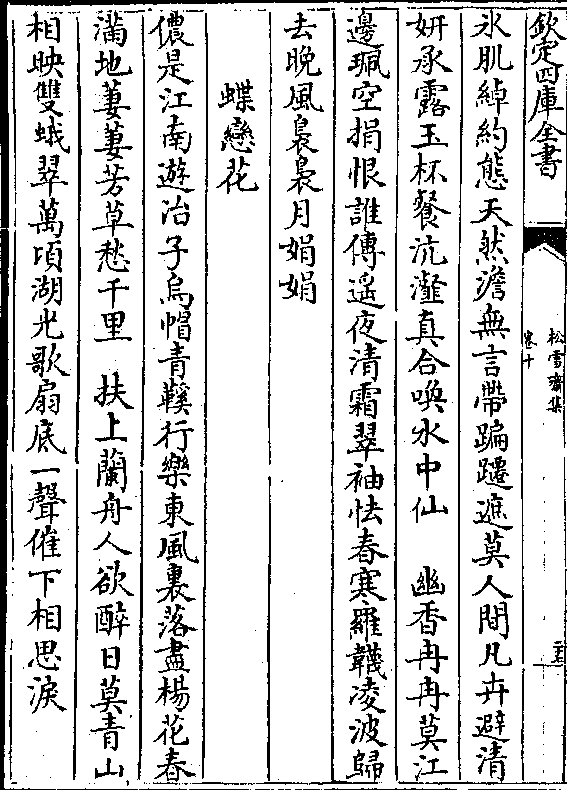 欽定四庫全書
松雪齋集
卷十
二十三
氷肌綽約態天然澹無言帶蹁躚遮莫人間凡卉避清
妍承露玉杯餐沆瀣真合喚水中仙　幽香冉冉莫江
邊珮空捐恨誰傳遥夜清霜翠袖怯春寒羅韈凌波歸
去晚風裊裊月娟娟
蝶戀花
儂是江南遊冶子烏帽青鞵行樂東風裏落盡楊花春
滿地萋萋芳草愁千里　扶上蘭舟人欲醉日莫青山
相映雙蛾翠萬頃湖光歌扇底一聲催下相思淚